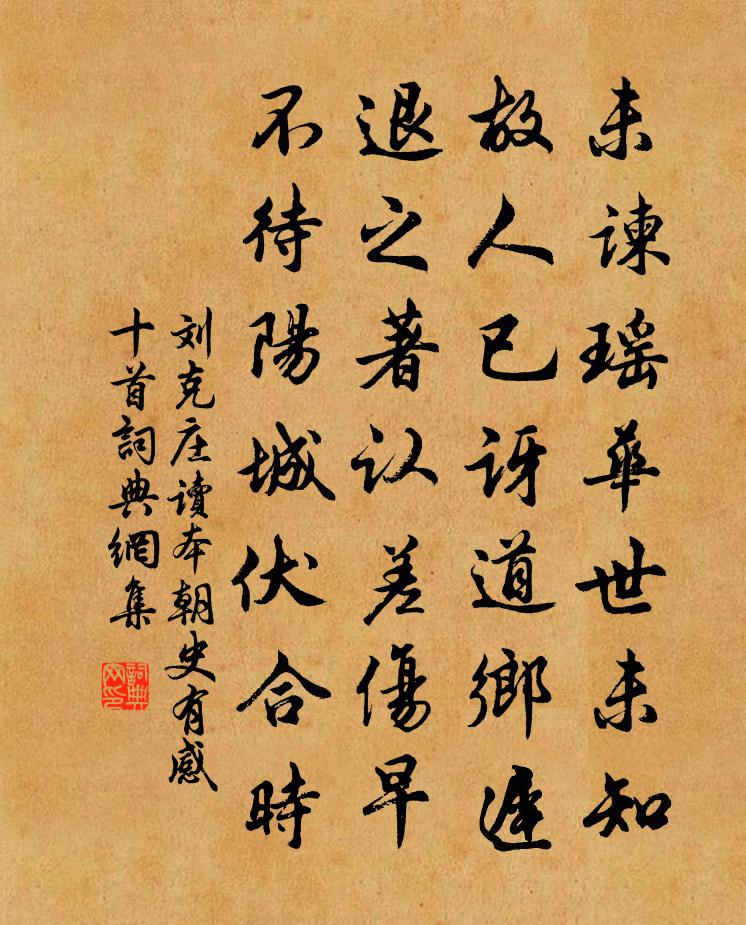 未諫瑶華世未知
故人已讶道鄉遲
退之著认差傷早
不待陽城伏合時
刘克庄讀本朝史有感
十首詞典網集
詞典网印